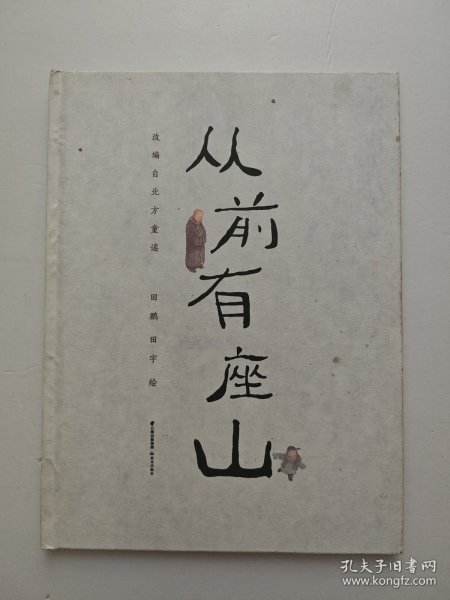 从前有座山
改编自北方童谣 田鹏 田宇 绘
孔夫子旧书网
www.kongfz.com